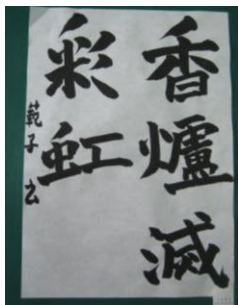 香爐滅
彩虹
範子書